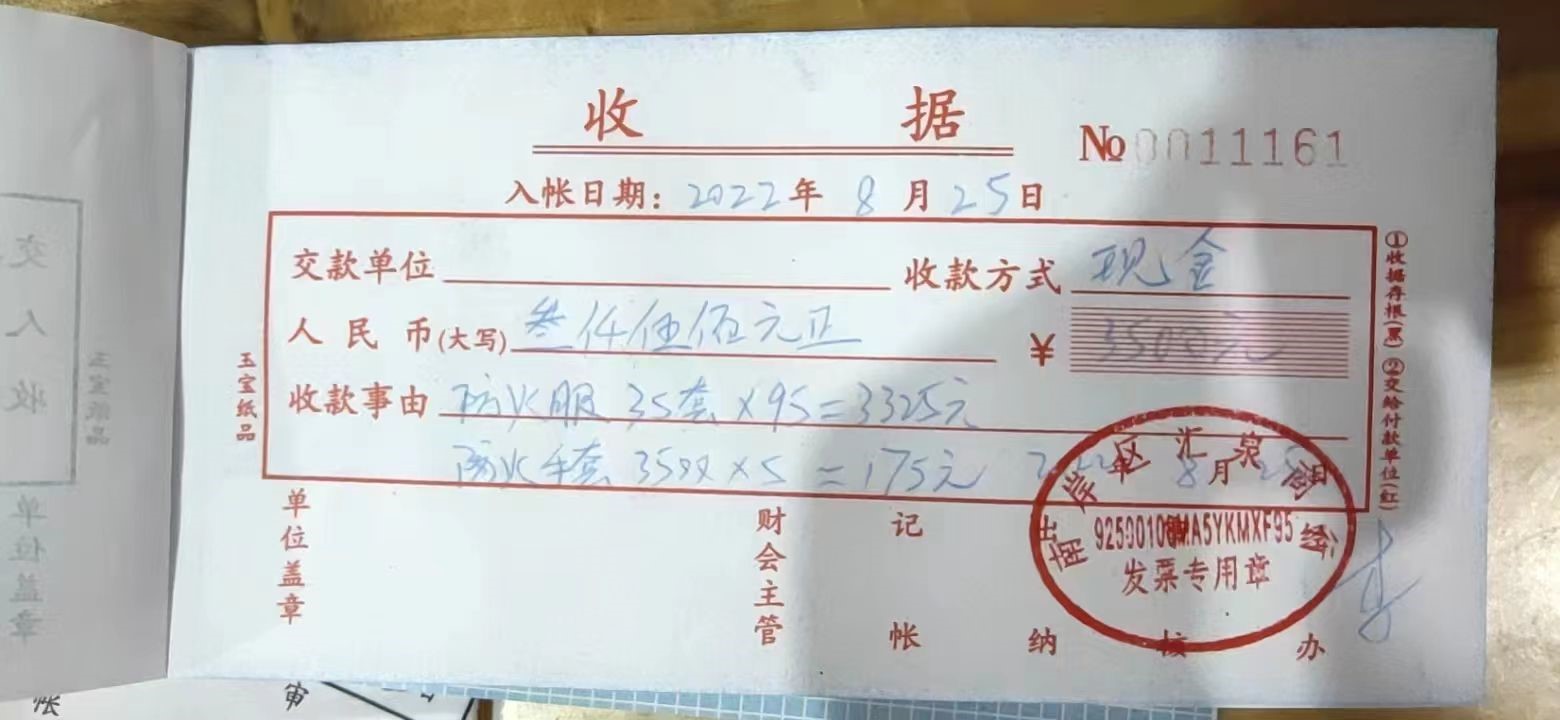 收 据
№0011161
入帐日期：2022年 8 月 25日
交款单位 收款方式 现金
人民币(大写) 叁仟伍佰元正 ¥ 3500元
收款事由 防火服 35套×95=3325元
防火手套 35双×5=175元 2022年8月25日
①收据存根(黑)②交给付款单位(红)
玉宝纸品
单位盖章
财会主管
记
帐
纳
核
办
南岸区汇泉
发票专用章
交
人
收
玉宝纸品
单位盖章
帐
审